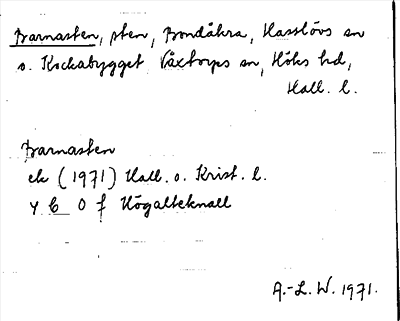 Barnasten, sten, Bondåkra, Hasslövs sn
o. Kockabygget Växtorps sn, Höks hd,
Hall. l.
Barnasten
ek (1971) Hall. o. Krist. l.
4 C O f Högalteknall
A.-L. W. 1971.